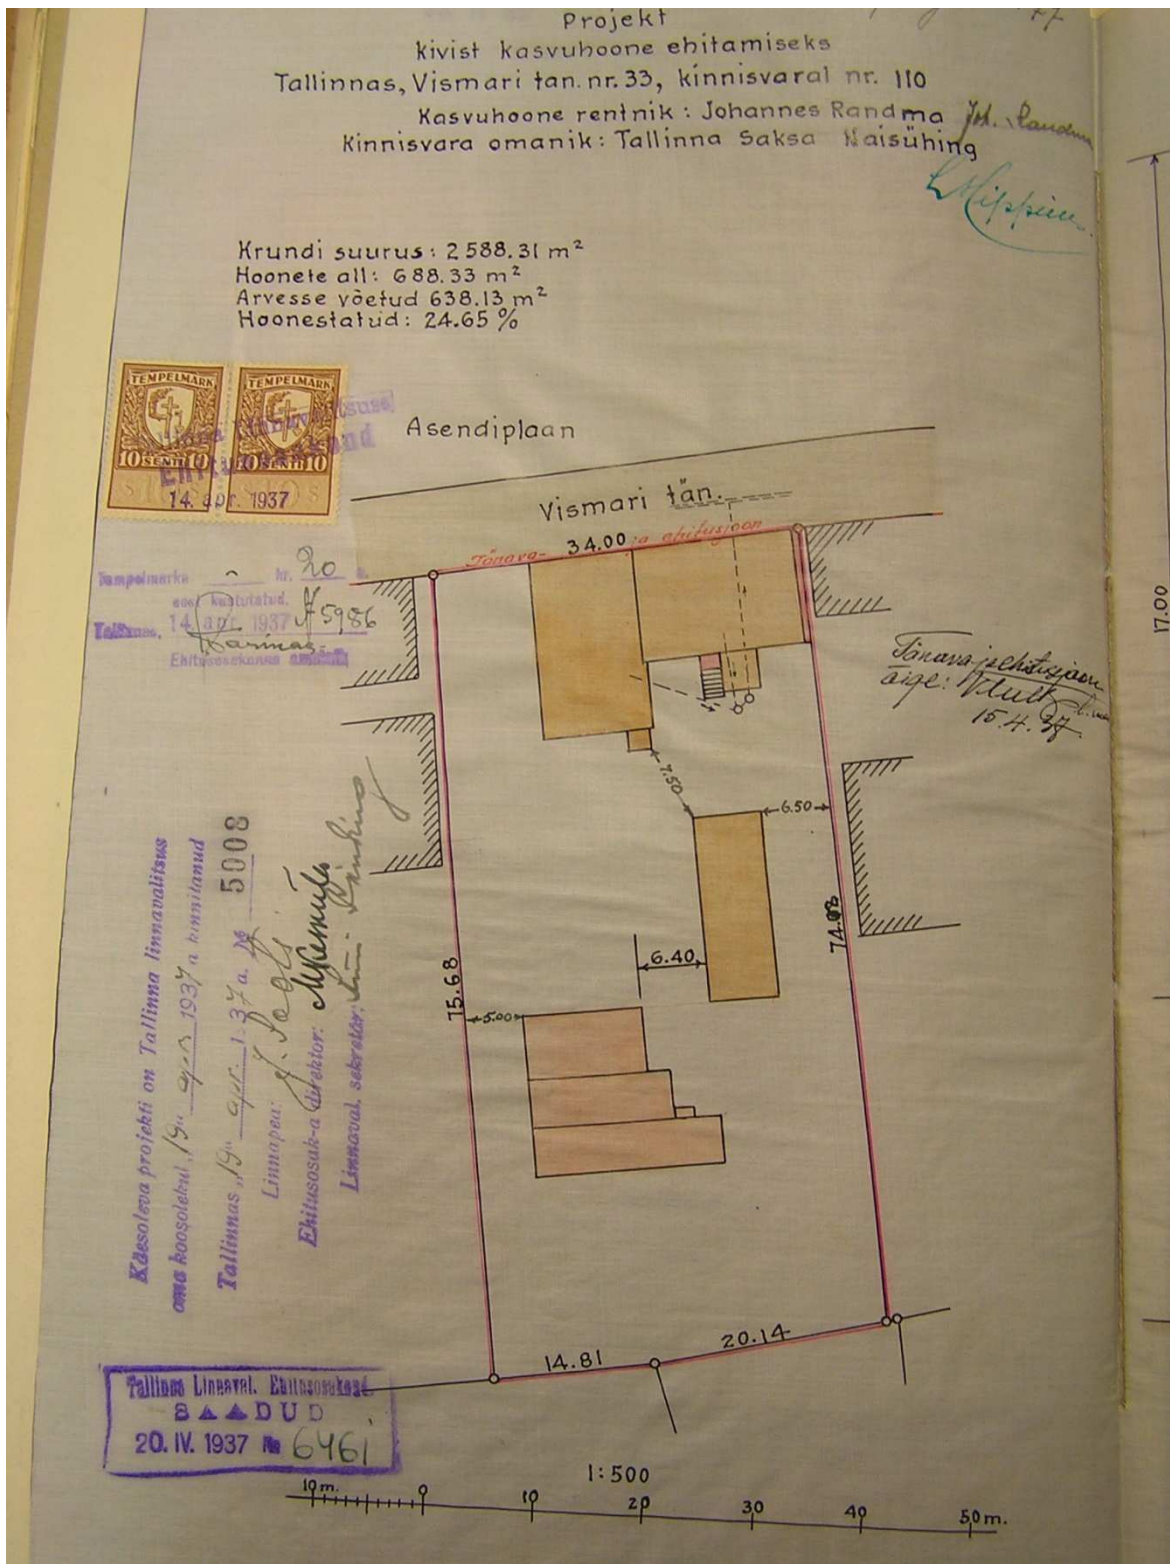 Projekt
kivist kasvuhoone ehitamiseks
Tallinnas, Vismari tan. nr. 33, kinnisvaral nr. 110
Kasvuhoone rentnik : Johannes Randma
Kinnisvara omanik : Tallinna Saksa Naisühing
Krundi suurus : 2588.31 m²
Hoonete all : 688.33 m²
Arvesse võetud 638.13 m²
Hoonestatud : 24.65 %
TEMPELMARK TEMPELMARK
10 SENTI 10 10 SENTI 10
Ehitusosakond
14. apr. 1937
Asendiplaan
Vismari tän.
Tänava- ja ehitusjoon
34.00
Tempelmarke kr. 20
eest kustutatud.
Tallinnas, 14 apr. 1937 № 5986
Ehitusosakonna
Tänava ja ehitusjoon
õige:
15.4.37
17.00
7.50
6.50
74.08
6.40
75.68
5.00
14.81
20.14
Käesoleva projekti on Tallinna linnavalitsus
oma koosolekul „19“ apr. 1937 a kinnitanud
Tallinnas „19“ apr. 1937 a. № 5008
Linnapea:
Ehitusosak-a direktor:
Linnaval. sekretär:
Tallinna Linnaval. Ehitusosakond.
SAADUD
20. IV. 1937 № 6461
1:500
10 m. 0 10 20 30 40 50 m.